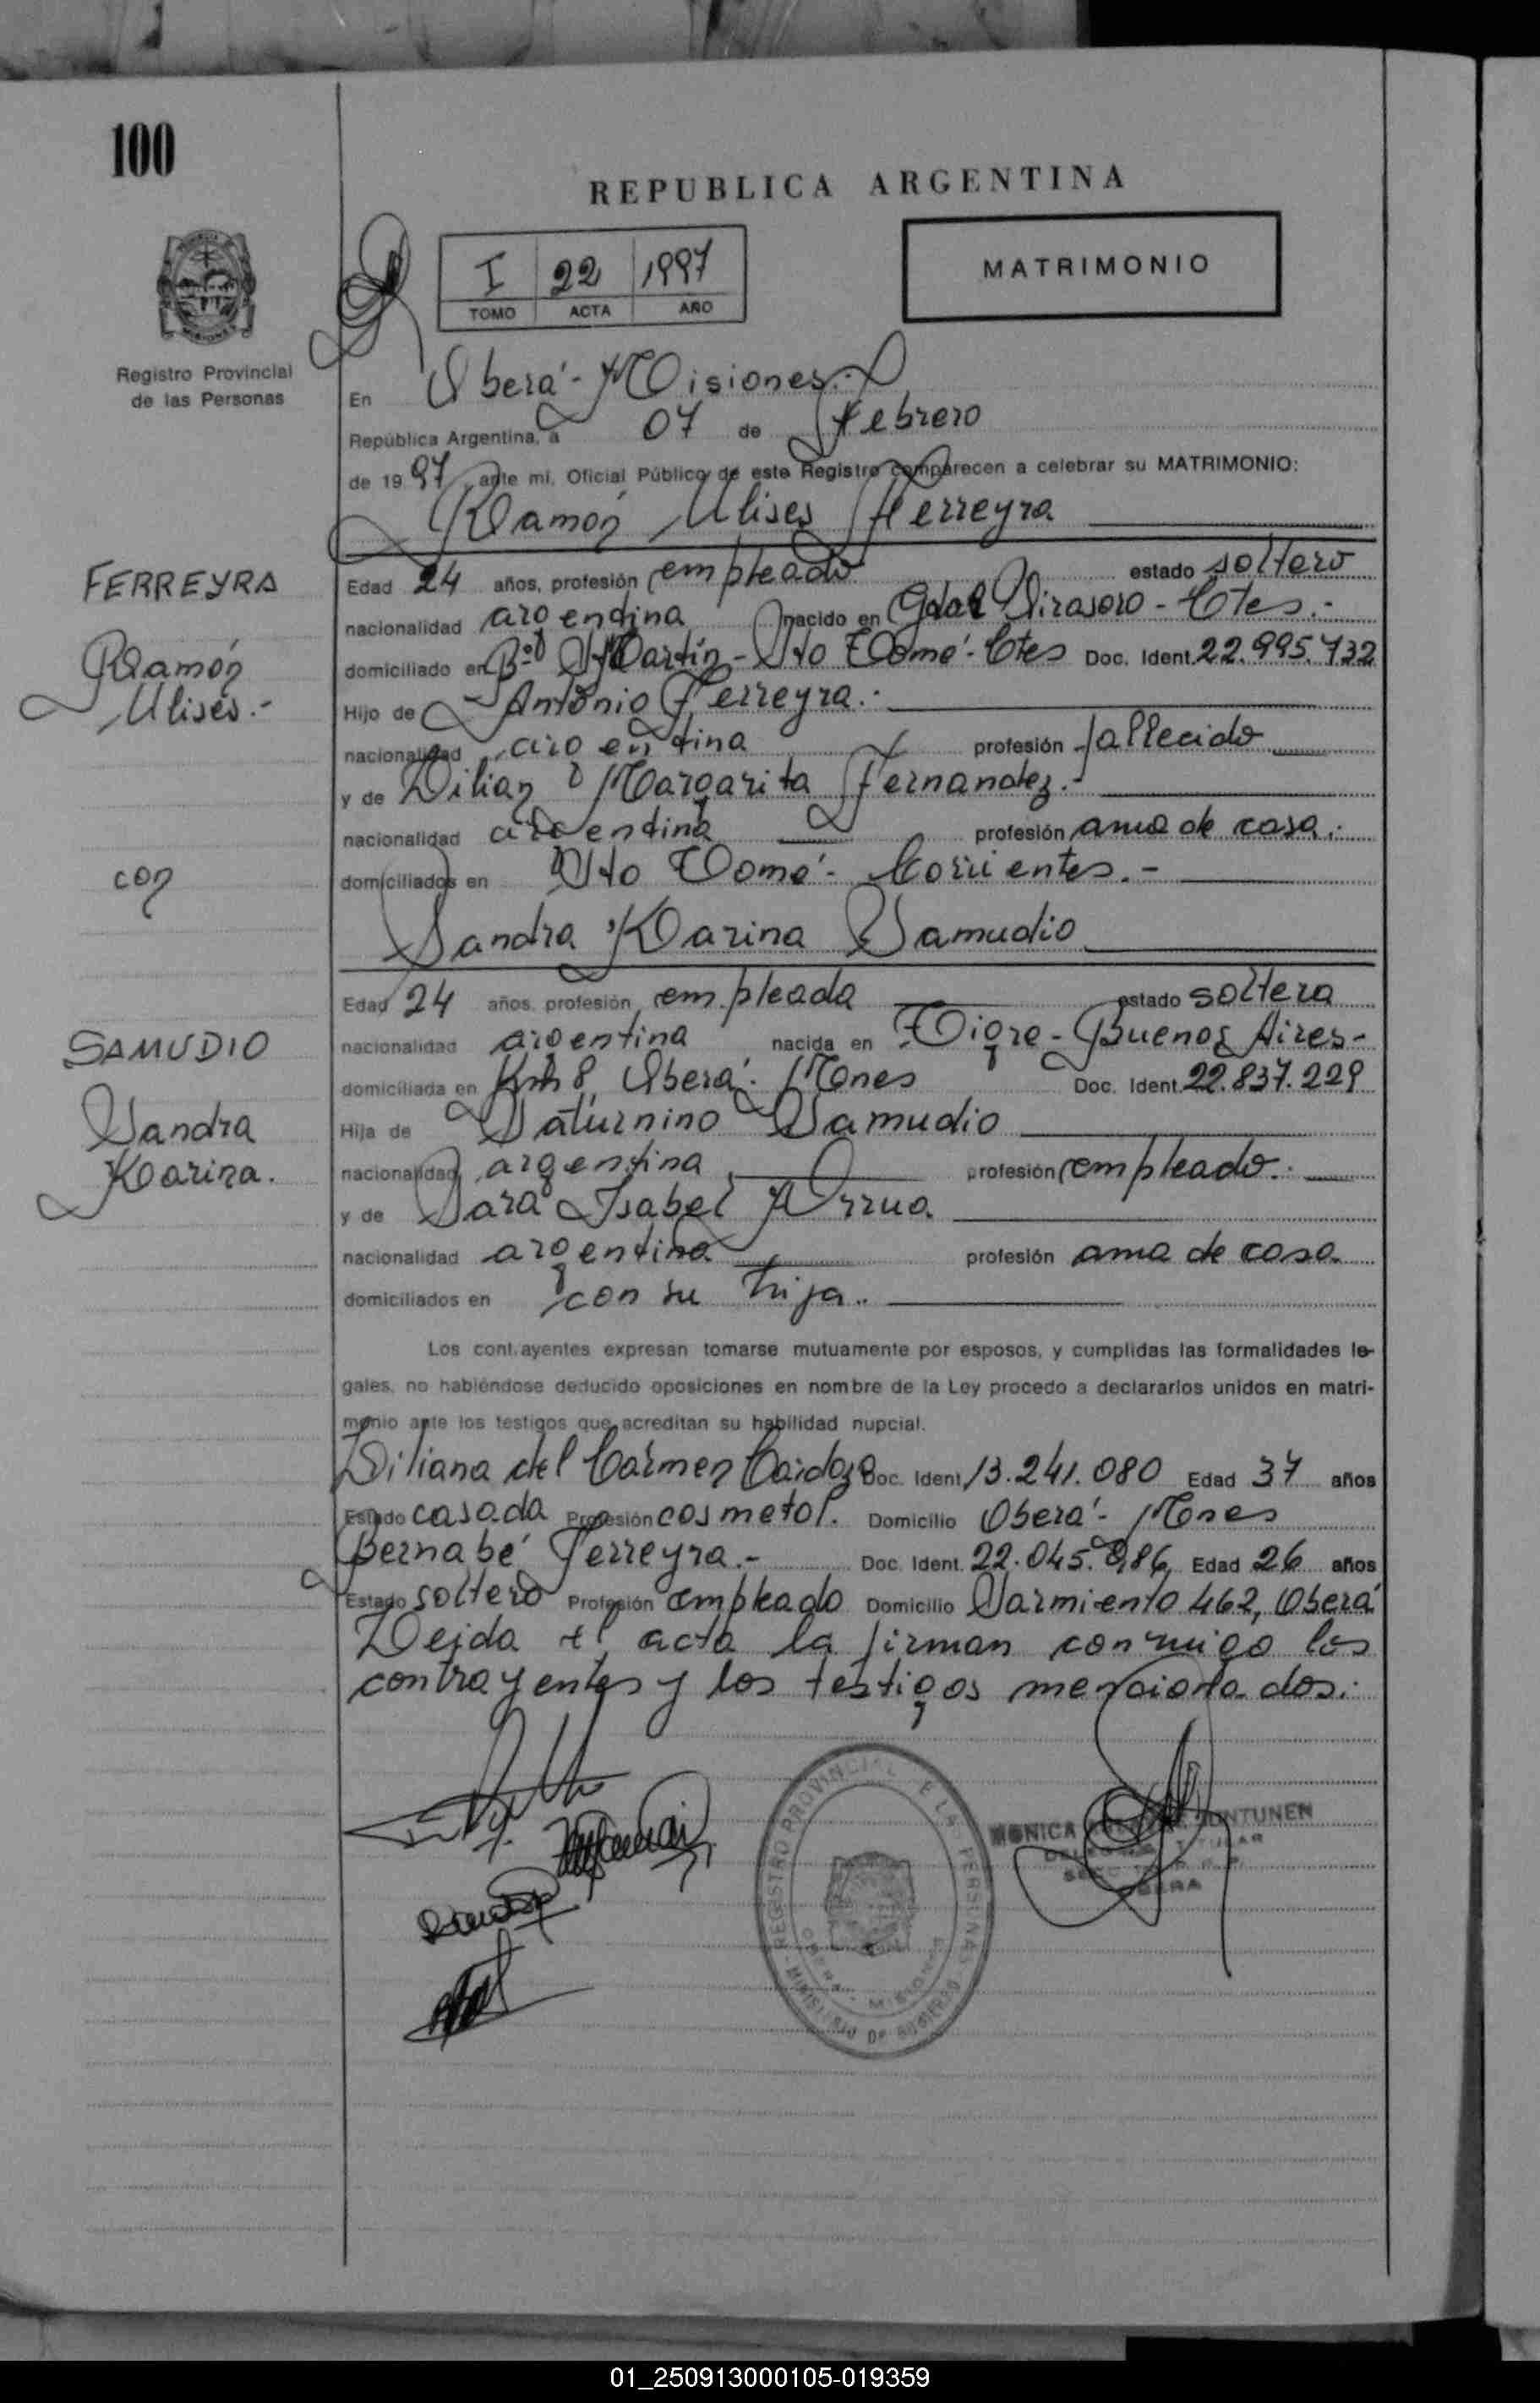 100
REPUBLICA ARGENTINA
I 22 1997
TOMO ACTA AÑO
MATRIMONIO
Registro Provincial
de las Personas
En Oberá - Misiones.-
República Argentina, a 07 de Febrero
de 1997 ante mi, Oficial Público de este Registro comparecen a celebrar su MATRIMONIO:
Ramón Ulises Ferreyra
FERREYRA
Ramón
Ulises.-
con
SAMUDIO
Sandra
Karina.
Edad 24 años, profesión empleado estado soltero
nacionalidad argentina nacido en Gdor Virasoro - Ctes.-
domiciliado en Bº Sn Martín - Sto Tomé - Ctes Doc. Ident. 22.995.732
Hijo de Antonio Ferreyra.-
nacionalidad argentina profesión fallecido
y de Lilian Margarita Fernandez.-
nacionalidad argentina profesión ama de casa.-
domiciliados en Sto Tomé - Corrientes.-
Sandra Karina Samudio
Edad 24 años, profesión empleada estado soltera
nacionalidad argentina nacida en Tigre - Buenos Aires-
domiciliada en Km 8, Oberá - Mnes Doc. Ident. 22.837.229
Hija de Saturnino Samudio
nacionalidad argentina profesión empleado.
y de Sara Isabel Arrua.
nacionalidad argentina profesión ama de casa.
domiciliados en con su hija.
Los contrayentes expresan tomarse mutuamente por esposos, y cumplidas las formalidades le-
gales, no habiéndose deducido oposiciones en nombre de la Ley procedo a declararlos unidos en matri-
monio ante los testigos que acreditan su habilidad nupcial.
Liliana del Carmen Cardozo Doc. Ident. 13.241.080 Edad 37 años
Estado casada Profesión cosmetol. Domicilio Oberá - Mnes
Bernabé Ferreyra.- Doc. Ident. 22.045.886 Edad 26 años
Estado soltero Profesión empleado Domicilio Sarmiento 462, Oberá
Leida el acta la firman conmigo los
contrayentes y los testigos mencionados.-
REGISTRO PROVINCIAL DE LAS PERSONAS
MINISTERIO DE GOBIERNO
OBERA - MISIONES
MONICA HUNTUNEN
TITULAR
OBERA
01_250913000105-019359